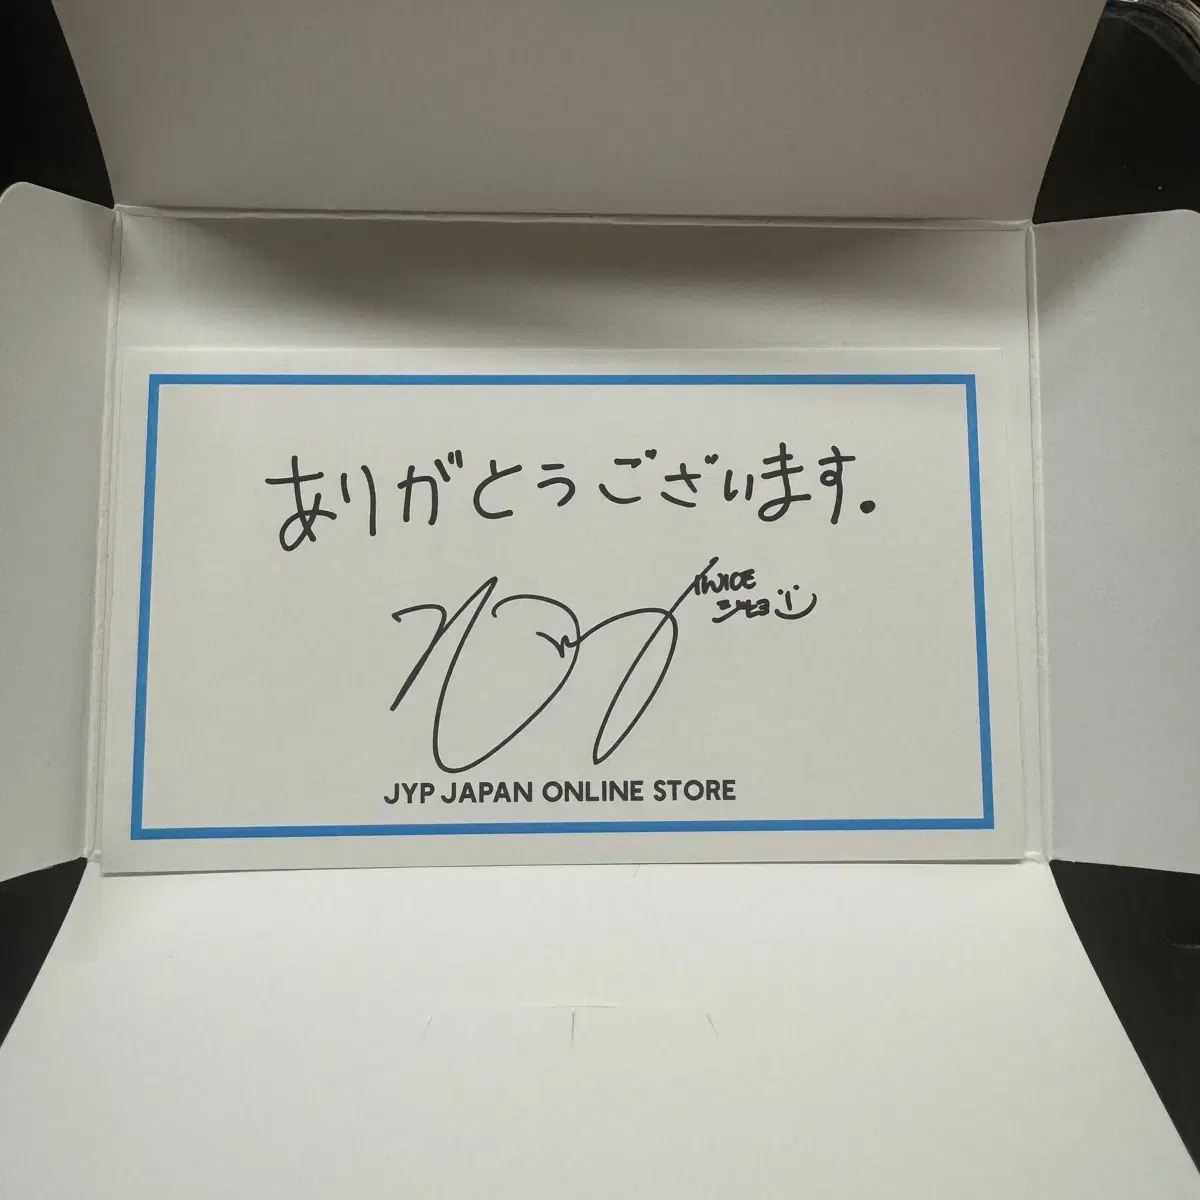 ありがとうございます.
TWICE
ジヒョ
JYP JAPAN ONLINE STORE